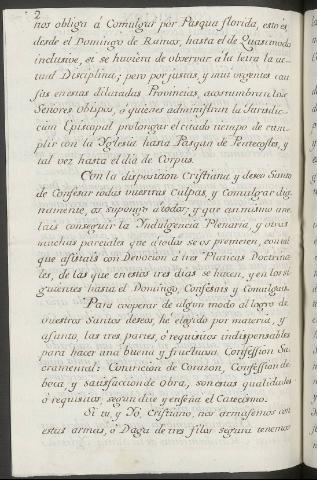 2
nos obliga á Comulgar por Pasqua florida, esto és
desde el Domingo de Ramos, hasta el de Quasimodo
inclusive, si se huviera de observar á la letra la ac-
tual Disciplina; pero por justas, y mui urgentes cau-
sas en estas dilatadas Provincias, acostumbran los
Señores Obispos, ó quienes administran la Jurisdic-
cion Episcopal prolongar el citado tiempo de cum-
plir con la Yglesia hasta Pasqua de Pentecostes, y
tal vez hasta el dia de Corpus.
Con la disposicion Cristiana, y deseo Santo
de Confesar todas vuestras Culpas, y Comulgar dig-
namente, os supongo á todos; y que asi mismo an-
elais conseguir la Yndulgencia Plenaria, y otras
muchas parciales que á todos se os prometen, con tal
que asistais con Devocion á tres Platicas Doctrina-
les, de las que en estos tres dias se hacen, y en los si-
guientes hasta el Domingo, Confeseis y Comulgueis.
Para cooperar de algun modo al logro de
vuestros Santos deseos, hé elegido por materia, y
asunto, las tres partes, ó requisitos indispensables
para hacer una buena y fructuosa Confession Sa-
cramental: Contricion de Corazon, Confession de
boca, y satisfaccion de Obra, son estas qualidades
ó requisitos, segun dice y enseña el Catecismo.
Si tu, y Yó, Cristiano, nos armasemos con
estas armas, ó Daga de tres filos segura tenemos